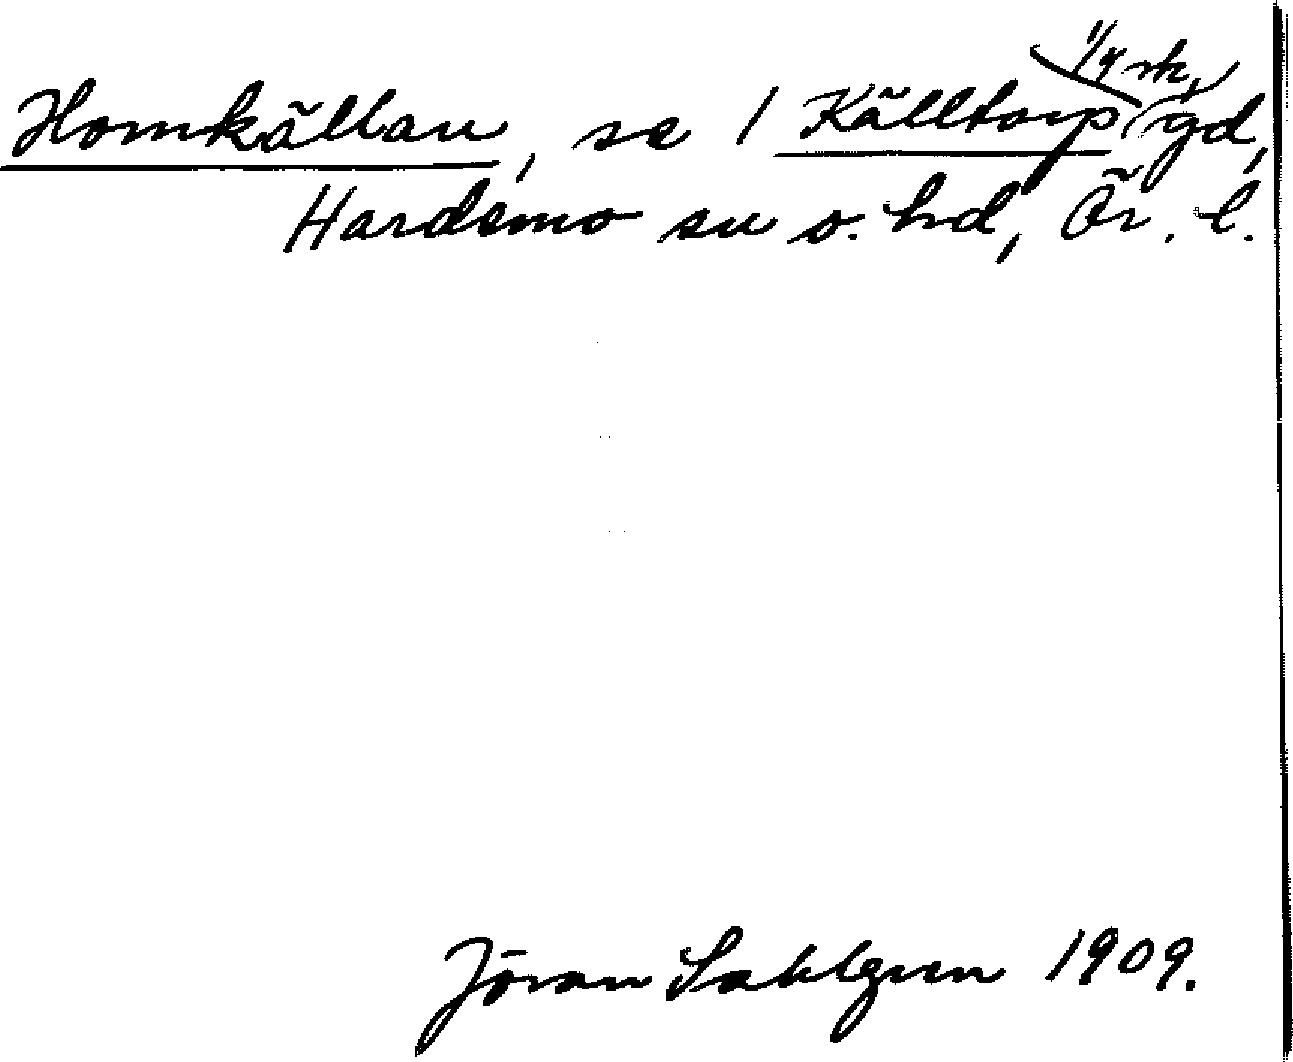 Homkällan, se 1 Källtorp, 1/4 sk, gd,
Hardemo sn o. hd, Ör. l.
Jöran Sahlgren 1909.